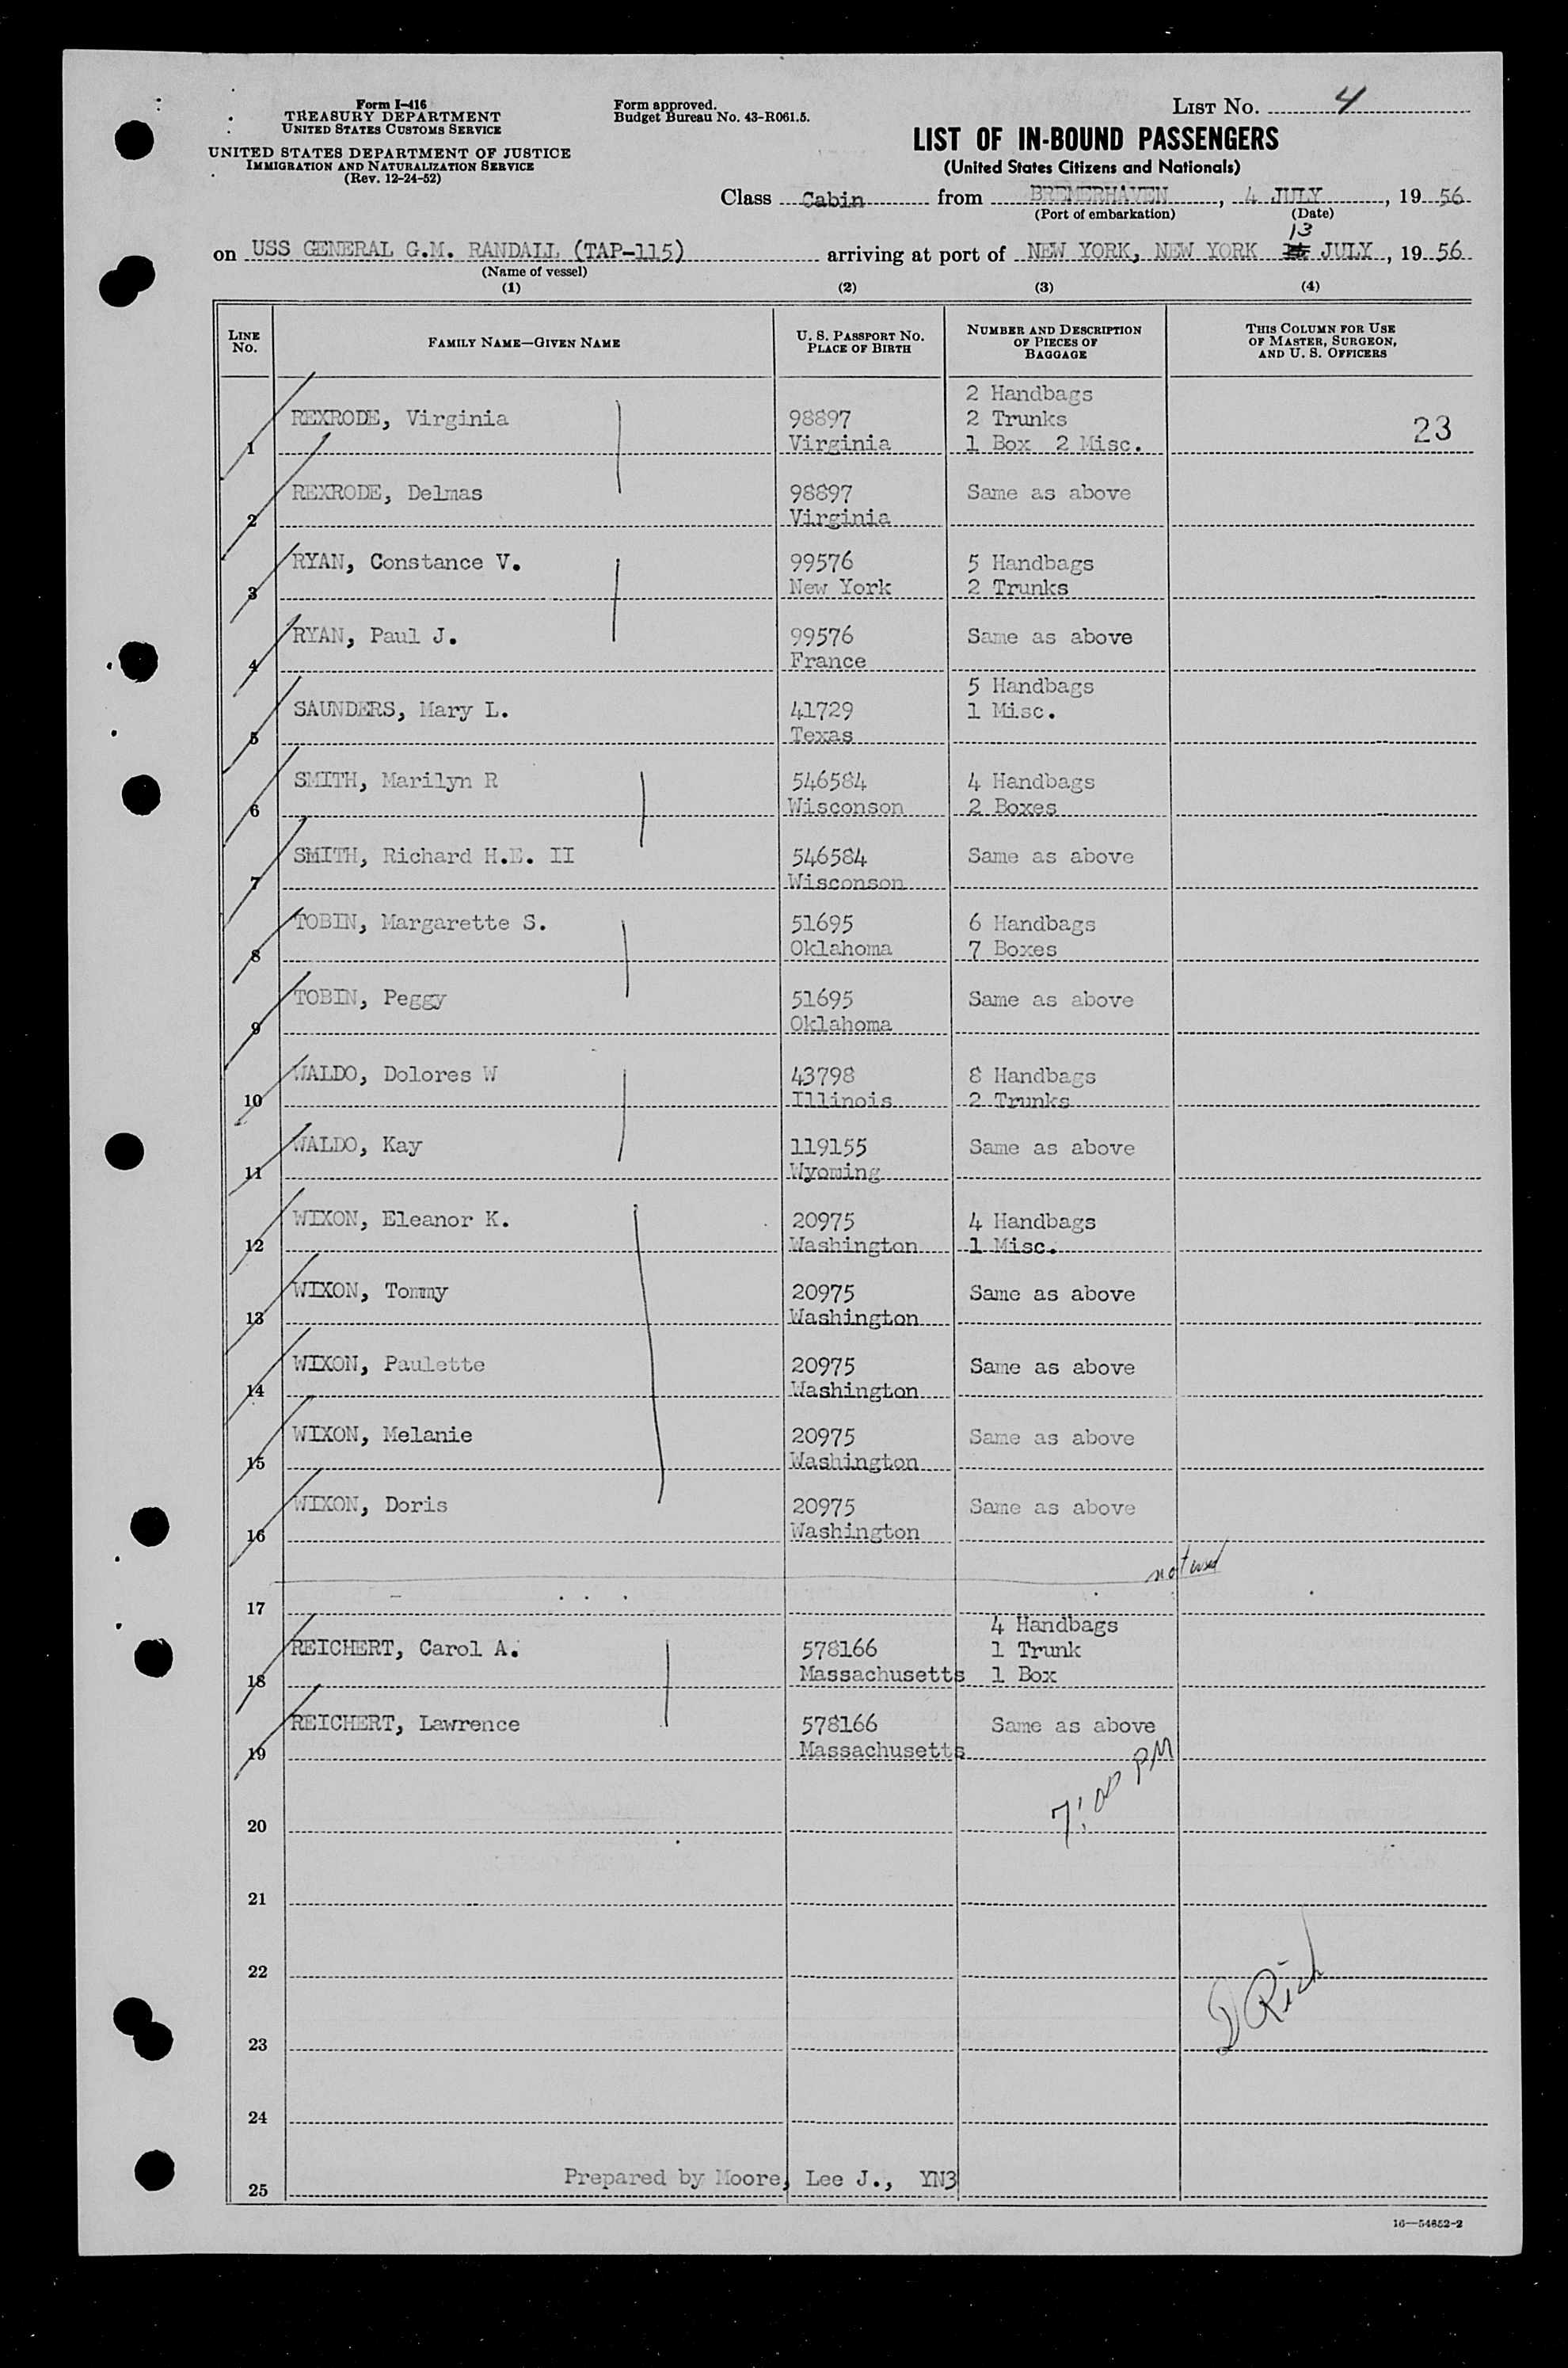 Form I-416
TREASURY DEPARTMENT
UNITED STATES CUSTOMS SERVICE
UNITED STATES DEPARTMENT OF JUSTICE
IMMIGRATION AND NATURALIZATION SERVICE
(Rev. 12-24-52)
Form approved.
Budget Bureau No. 43-R061.5.
LIST NO. 4
LIST OF IN-BOUND PASSENGERS
(United States Citizens and Nationals)
Class Cabin from BREMERHAVEN, 4 JULY, 19 56
(Port of embarkation) (Date)
13
on USS GENERAL G.M. RANDALL (TAP-115) arriving at port of NEW YORK, NEW YORK JULY, 19 56
(Name of vessel)
(1) (2) (3) (4)
LINE NO. FAMILY NAME—GIVEN NAME U. S. PASSPORT NO. PLACE OF BIRTH NUMBER AND DESCRIPTION OF PIECES OF BAGGAGE THIS COLUMN FOR USE OF MASTER, SURGEON, AND U. S. OFFICERS
2 Handbags
REXRODE, Virginia 98897 2 Trunks 23
1 Virginia 1 Box 2 Misc.
REXRODE, Delmas 98897 Same as above
2 Virginia
RYAN, Constance V. 99576 5 Handbags
3 New York 2 Trunks
RYAN, Paul J. 99576 Same as above
4 France
5 Handbags
SAUNDERS, Mary L. 41729 1 Misc.
5 Texas
SMITH, Marilyn R 546584 4 Handbags
6 Wisconson 2 Boxes
SMITH, Richard H.E. II 546584 Same as above
7 Wisconson
TOBIN, Margarette S. 51695 6 Handbags
8 Oklahoma 7 Boxes
TOBIN, Peggy 51695 Same as above
9 Oklahoma
WALDO, Dolores W 43798 8 Handbags
10 Illinois 2 Trunks
WALDO, Kay 119155 Same as above
11 Wyoming
WIXON, Eleanor K. 20975 4 Handbags
12 Washington 1 Misc.
WIXON, Tommy 20975 Same as above
13 Washington
WIXON, Paulette 20975 Same as above
14 Washington
WIXON, Melanie 20975 Same as above
15 Washington
WIXON, Doris 20975 Same as above
16 Washington
not used
17
4 Handbags
REICHERT, Carol A. 578166 1 Trunk
18 Massachusetts 1 Box
REICHERT, Lawrence 578166 Same as above
19 Massachusetts
7:00 PM
20
21
22
D Rich
23
24
Prepared by Moore, Lee J., YN3
25
16—54652-2